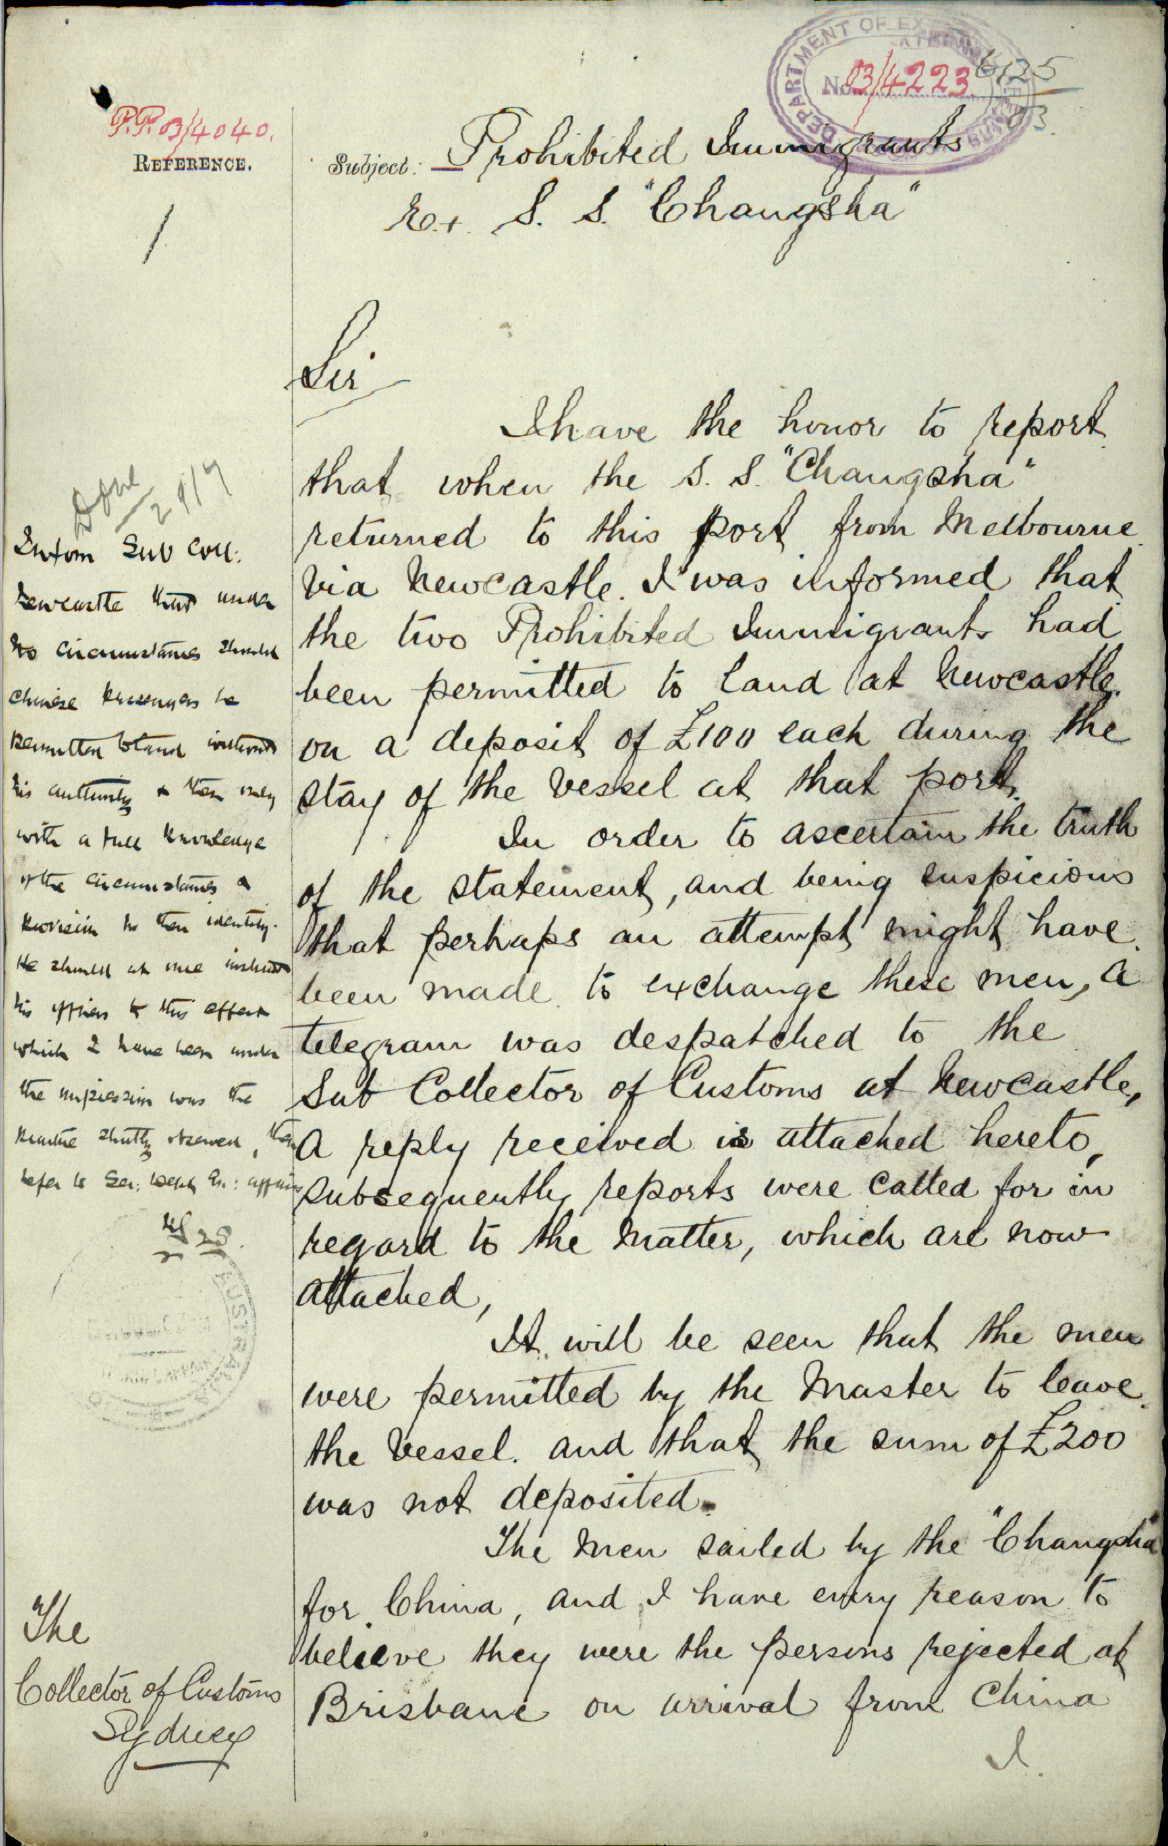 DEPARTMENT OF EXTERNAL AFFAIRS
No. 03/4223
6125
03
P.P. 03/4040.
REFERENCE.
1
Subject: Prohibited Immigrants
Ex. S. S. "Changsha"
Sir
I have the honor to report
that when the S. S. "Changsha"
returned to this port from Melbourne
via Newcastle. I was informed that
the two Prohibited Immigrants had
been permitted to land at Newcastle.
on a deposit of £100 each during the
stay of the Vessel at that port.
In order to ascertain the truth
of the statement, and being suspicious
that perhaps an attempt might have
been made to exchange these men, a
telegram was despatched to the
Sub Collector of Customs at Newcastle,
A reply received is attached hereto,
subsequently reports were called for in
regard to the matter, which are now
attached,
It will be seen that the men
were permitted by the Master to leave
the Vessel. and that the sum of £200
was not deposited.
The men sailed by the "Changsha"
for China, and I have every reason to
believe they were the persons rejected at
Brisbane on arrival from China
I.
Done
29/7
Inform Sub Coll:
Newcastle that under
no circumstances should
Chinese Passengers be
permitted to land without
his authority & then only
with a full knowledge
of the circumstances &
provision to their identity.
He should at once instruct
his officers to this effect
which I have been under
the impression was the
practice strictly observed, then
refer to Sec: Dept Ex: Affairs
28
AUSTRALIA
The
Collector of Customs
Sydney